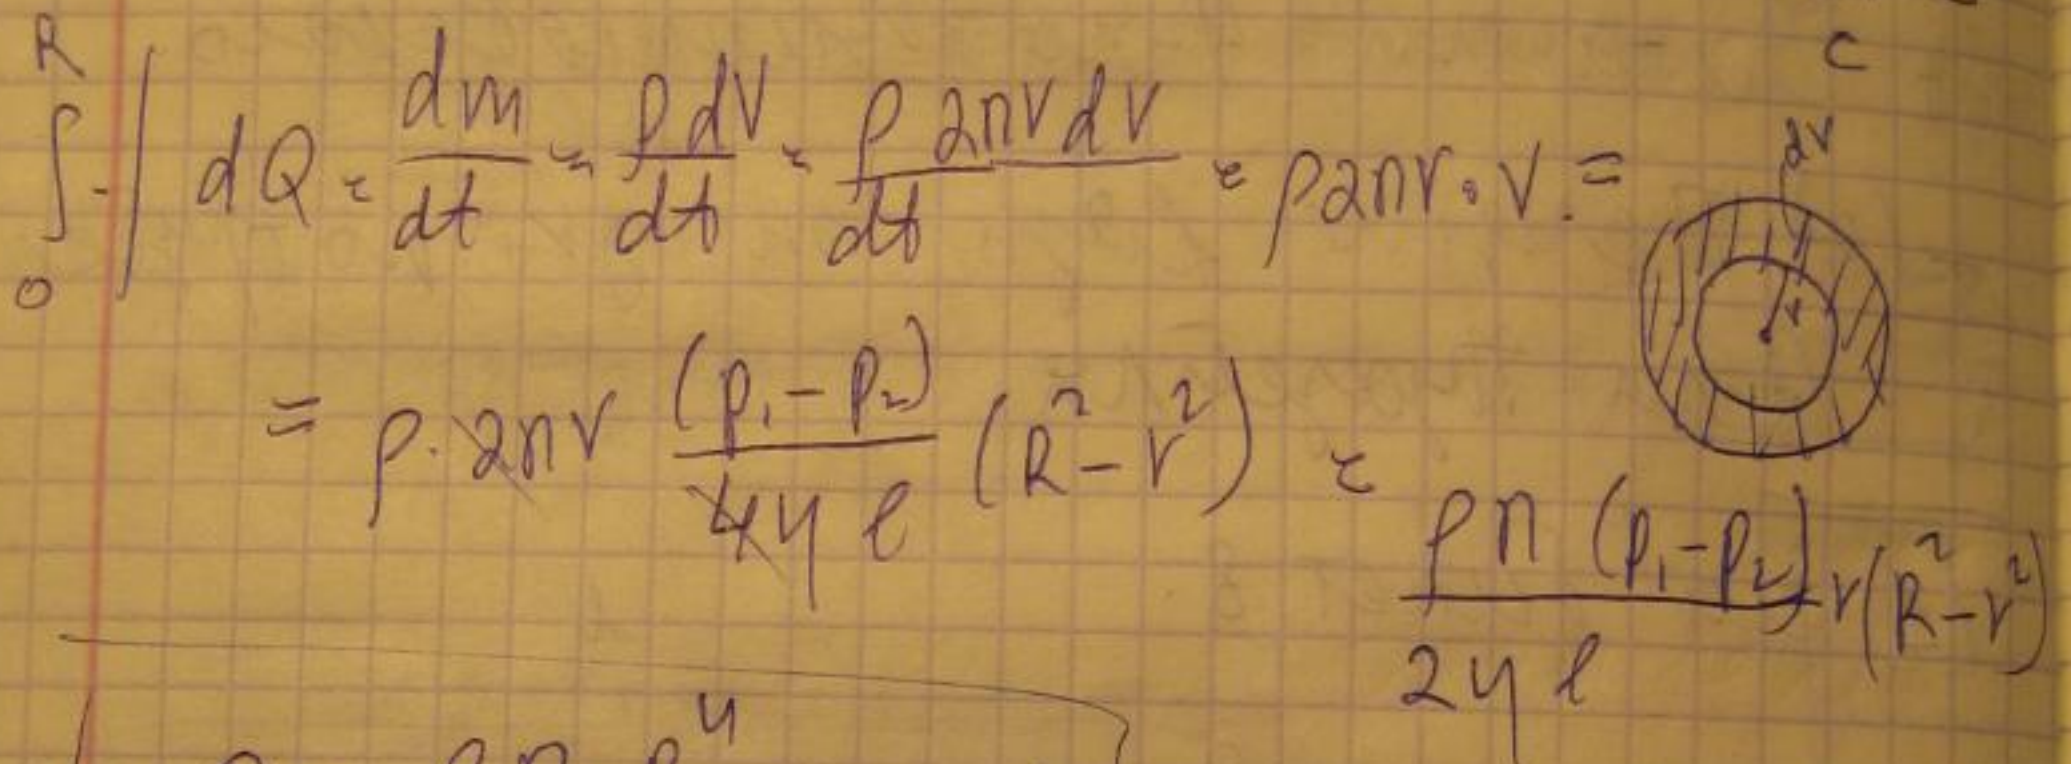 C
∫₀ᴿ -| dQ = dm/dt = ρdV/dt = ρ2πrdr/dt = ρ2πr·v. =
dr
r
= ρ·2πr (p₁-p₂)/4ηl (R²-r²) = ρπ(p₁-p₂)/2ηl r(R²-r²)